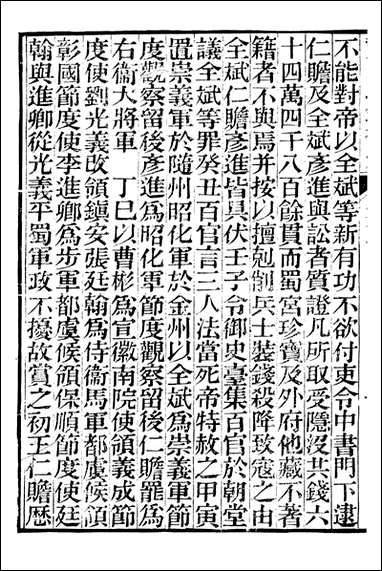 不能對帝以全斌等新有功不欲付吏令中書門下逮
仁贍及全斌彥進與訟者質證凡所取受隱沒共錢六
十四萬四千八百餘貫而蜀宮珍寶及外府他藏不著
籍者不與焉并按以擅剋削兵士裝錢殺降致寇之由
全斌仁贍彥進皆具伏壬子令御史臺集百官於朝堂
議全斌等罪癸丑百官言三人法當死帝特赦之甲寅
置崇義軍於隨州昭化軍於金州以全斌爲崇義軍節
度觀察留後彥進爲昭化軍節度觀察留後仁贍罷爲
右衛大將軍　丁巳以曹彬爲宣徽南院使領義成節
度使劉光義改領鎮安張廷翰爲侍衛馬軍都虞候領
彰國節度使李進卿爲步軍都虞候領保順節度使廷
翰與進卿從光義平蜀軍政不擾故賞之初王仁贍歷